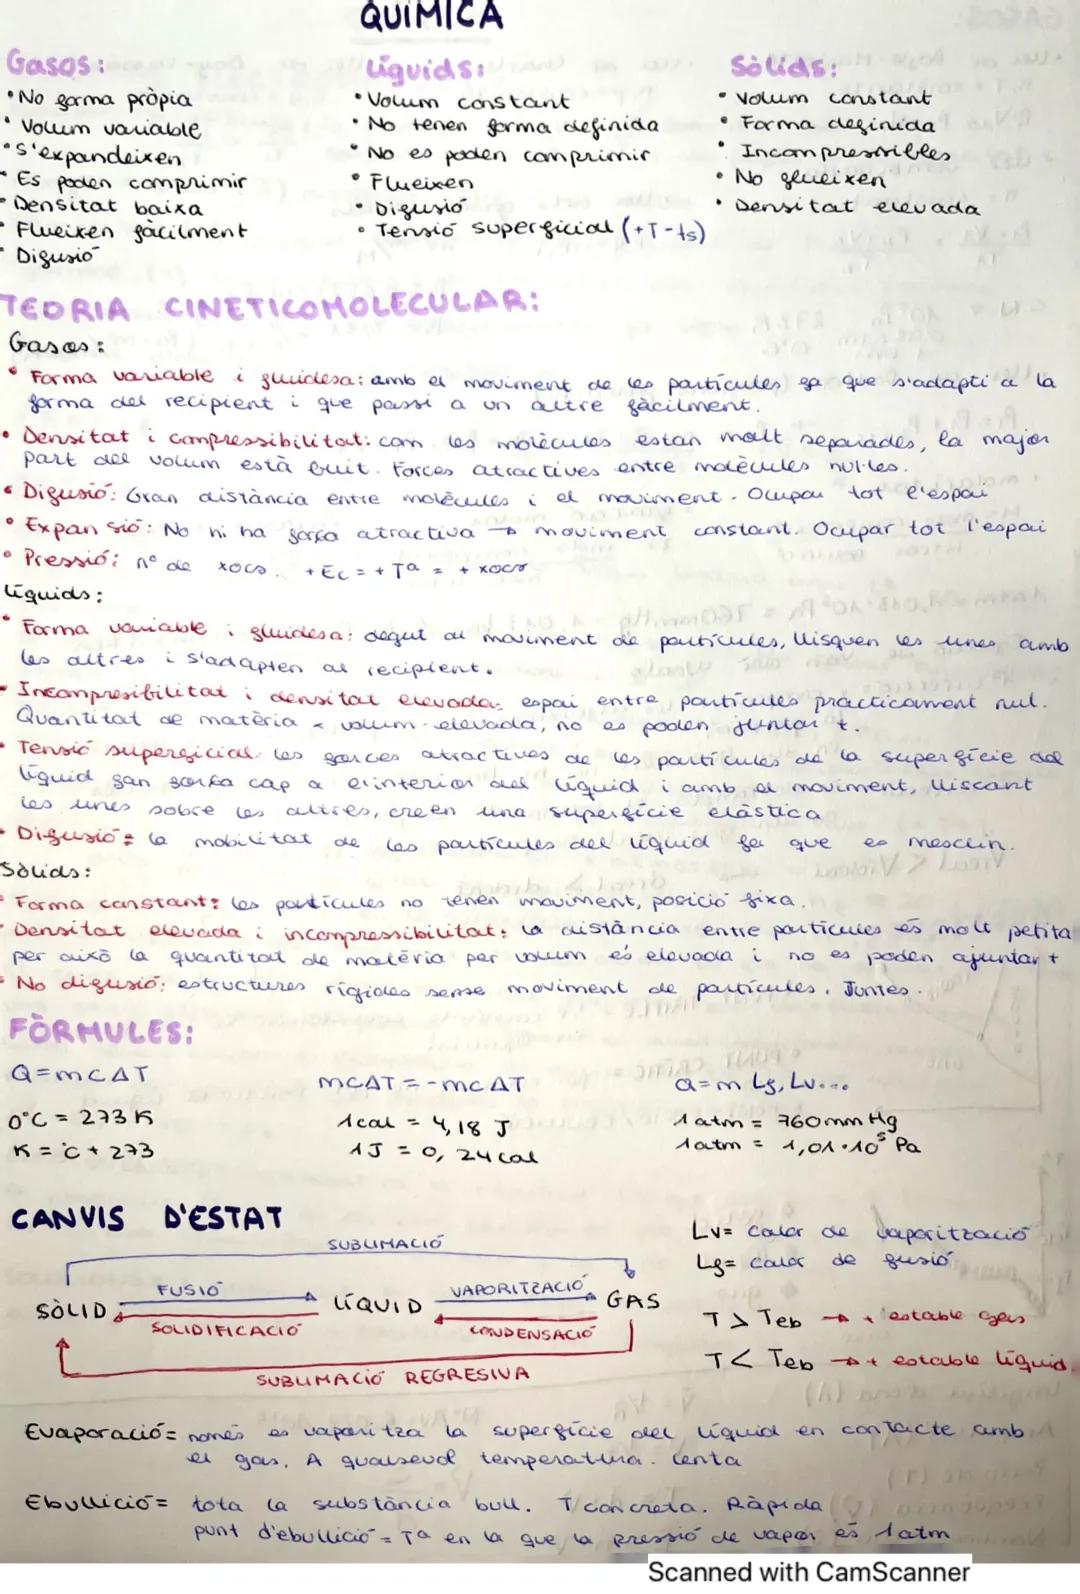 QUIMICA
Gasos:
• No forma pròpia
• Volum variable
• S'expandeixen
• Es poden comprimir
• Densitat baixa
• Flueixen fàcilment
• Difusió
Líquids:
• Volum constant
• No tenen forma definida
• No es poden comprimir
• Flueixen
• Difusió
• Tensió superficial (+T-ts)
Sòlids:
• Volum constant
• Forma definida
• Incompressibles
• No flueixen
• Densitat elevada
TEORIA CINETICOMOLECULAR:
Gasos:
• Forma variable i fluidesa: amb el moviment de les partícules fa que s'adapti a la
forma del recipient i que passi a un altre fàcilment.
• Densitat i compressibilitat: com les molècules estan molt separades, la major
part del volum està buit. Forces atractives entre molècules nul·les.
• Difusió: Gran distància entre molècules i el moviment. Ocupar tot l'espai
• Expansió: No hi ha força atractiva → moviment constant. Ocupar tot l'espai
• Pressió: nº de xocs. +Ec = +Tª = + xocs
Líquids:
• Forma variable i fluidesa: degut al moviment de partícules, llisquen les unes amb
les altres i s'adapten al recipient.
• Incompresibilitat i densitat elevada: espai entre partícules pràcticament nul.
Quantitat de matèria x volum elevada, no es poden juntar +.
• Tensió superficial: les forces atractives de les partícules de la superfície del
líquid fan força cap a l'interior del líquid i amb el moviment, lliscant
les unes sobre les altres, creen una superfície elàstica
• Difusió: la mobilitat de les partícules del líquid fa que es mesclin.
Sòlids:
• Forma constant: les partícules no tenen moviment, posició fixa.
• Densitat elevada i incompressibilitat: la distància entre partícules és molt petita
per això la quantitat de matèria per volum és elevada i no es poden ajuntar +
• No difusió: estructures rígides sense moviment de partícules. Juntes.
FÒRMULES:
Q=mCΔT
mCΔT = -mCΔT
Q=m Lf, Lv...
0°C = 273 K
1cal = 4,18 J
1atm = 760mmHg
K = °C + 273
1J = 0,24cal
1atm = 1,01·10⁵ Pa
CANVIS D'ESTAT
SUBLIMACIÓ
FUSIÓ
VAPORITZACIÓ
SÒLID
LÍQUID
GAS
SOLIDIFICACIÓ
CONDENSACIÓ
SUBLIMACIÓ REGRESIVA
Lv= calor de vaporització
Lf= calor de fusió
T > Teb → + estable gas
T < Teb → + estable líquid
Evaporació = només es vaporitza la superfície del líquid en contacte amb
el gas. A qualsevol temperatura. Lenta
Ebullició = tota la substància bull. T concreta. Ràpida
punt d'ebullició = Tª en la que la pressió de vapor és 1atm
Scanned with CamScanner